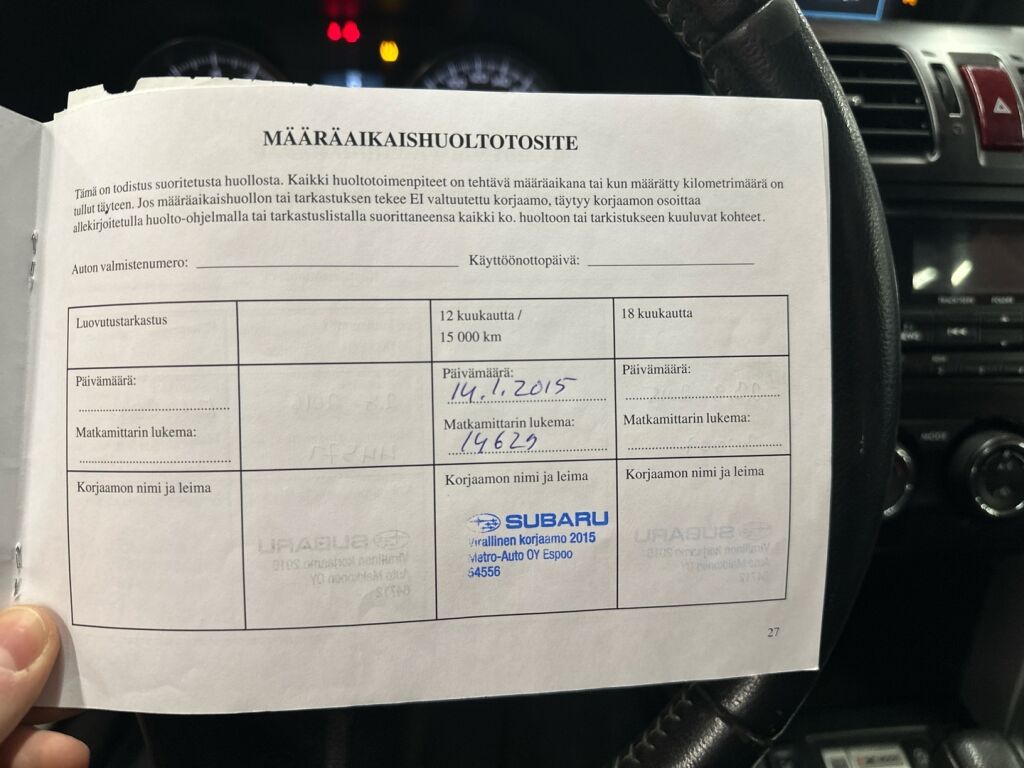 MÄÄRÄAIKAISHUOLTOTOSITE
Tämä on todistus suoritetusta huollosta. Kaikki huoltotoimenpiteet on tehtävä määräaikana tai kun määrätty kilometrimäärä on
tullut täyteen. Jos määräaikaishuollon tai tarkastuksen tekee EI valtuutettu korjaamo, täytyy korjaamon osoittaa
allekirjoitetulla huolto-ohjelmalla tai tarkastuslistalla suorittaneensa kaikki ko. huoltoon tai tarkistukseen kuuluvat kohteet.
Auton valmistenumero: Käyttöönottopäivä:
Luovutustarkastus
12 kuukautta /
15 000 km
18 kuukautta
Päivämäärä:
Päivämäärä:
14.1.2015
Päivämäärä:
Matkamittarin lukema:
Matkamittarin lukema:
14629
Matkamittarin lukema:
Korjaamon nimi ja leima
Korjaamon nimi ja leima
SUBARU
Virallinen korjaamo 2015
Metro-Auto OY Espoo
64556
Korjaamon nimi ja leima
27
MODE